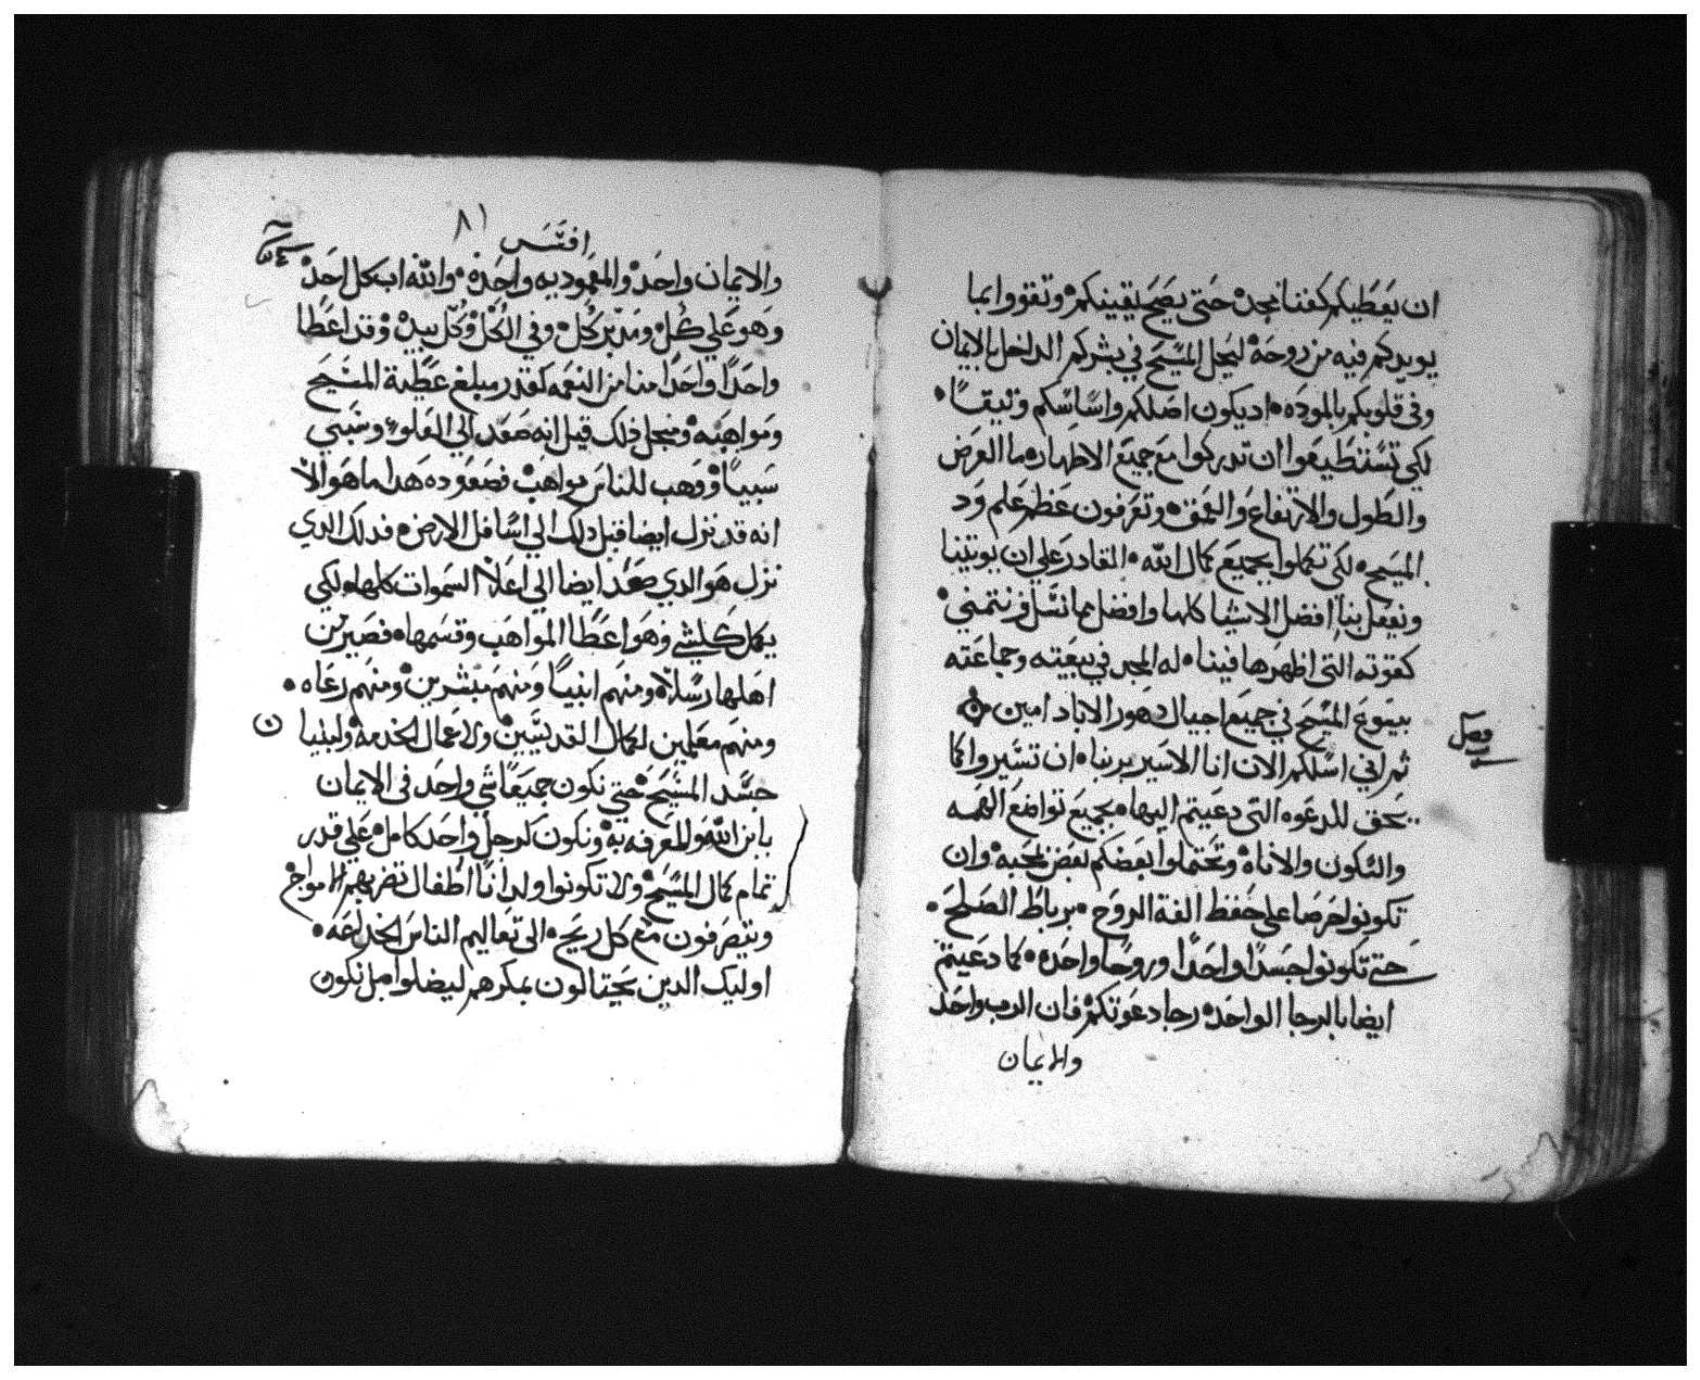 ان يعطيكم كغنا مجده حتى يصح يقينكم وتقووا بما
يويدكم فيه من روحه ليحل المسيح في بشركم الداخل بالايمان
وفي قلوبكم بالموده اد يكون اصلكم واساسكم وثيقًا
لكي تستطيعوا ان تدركوا مع جميع الاطهار ما العرض
والطول والارتفاع والعمق وتعرفون عظم علم ود
المسيح لكي تكملوا بجميع كمال الله القادر علي ان يوتينا
ويفعل بنا افضل الاشيا كلها وافضل مما نسل ونتمني
كقوته التي اظهرها فينا له المجد في بيعته وجماعته
بيسوع المسيح في جميع اجيال دهور الاباد امين
فصل
ثم اني اسلكم الان انا الاسير بربنا ان تسيروا كما
يحق للدعوه التي دعيتم اليها بجميع تواضع الهمه
والسكون والاناه وتحتملوا بعضكم بعض بمحبه وان
تكونوا حرصا علي حفظ الفة الروح برباط الصلح
حتي تكونوا جسدًا واحدًا وروحًا واحده كما دعيتم
ايضا بالرجا الواحده رجا دعوتكم فان الرب واحد
والايمان
افسس
٨١
والايمان واحد والمعموديه واحده والله اب كل احد
وهو علي كل ومدبر كل وفي الكل وكل بيده وقد اعطا
واحدًا واحدًا منا من النعمه كقدر مبلغ عطية المسيح
ومواهبه ومنجل ذلك قيل انه صعد الي العلو وسبي
سبيًا ووهب للناس مواهب فصعوده هدا ما هو الا
انه قد نزل ايضا قبل دلك الي اسافل الارض فدلك الدي
نزل هو الدي صعد ايضا الي اعلا السموات كلها لكي
يكمل كليشي وهو اعطا المواهب وقسمها فصير من
اهلها رسلا ومنهم انبيًا ومنهم مبشرين ومنهم رعاه
ومنهم معلمين لكمال القديسين ولاعمال الخدمه ولبنيا
ن
جسد المسيح حتي نكون جميعًا شي واحد في الايمان
بابن الله والمعرفه به ونكون كرجل واحد كامل علي قدر
تمام كمال المسيح ولا تكونوا ولدانًا اطفال تضربهم الامواج
ويتصرفون مع كل ريح الي تعاليم الناس الخداعه
اوليك الدين يحتالون بمكرهم ليضلوا بل نكون